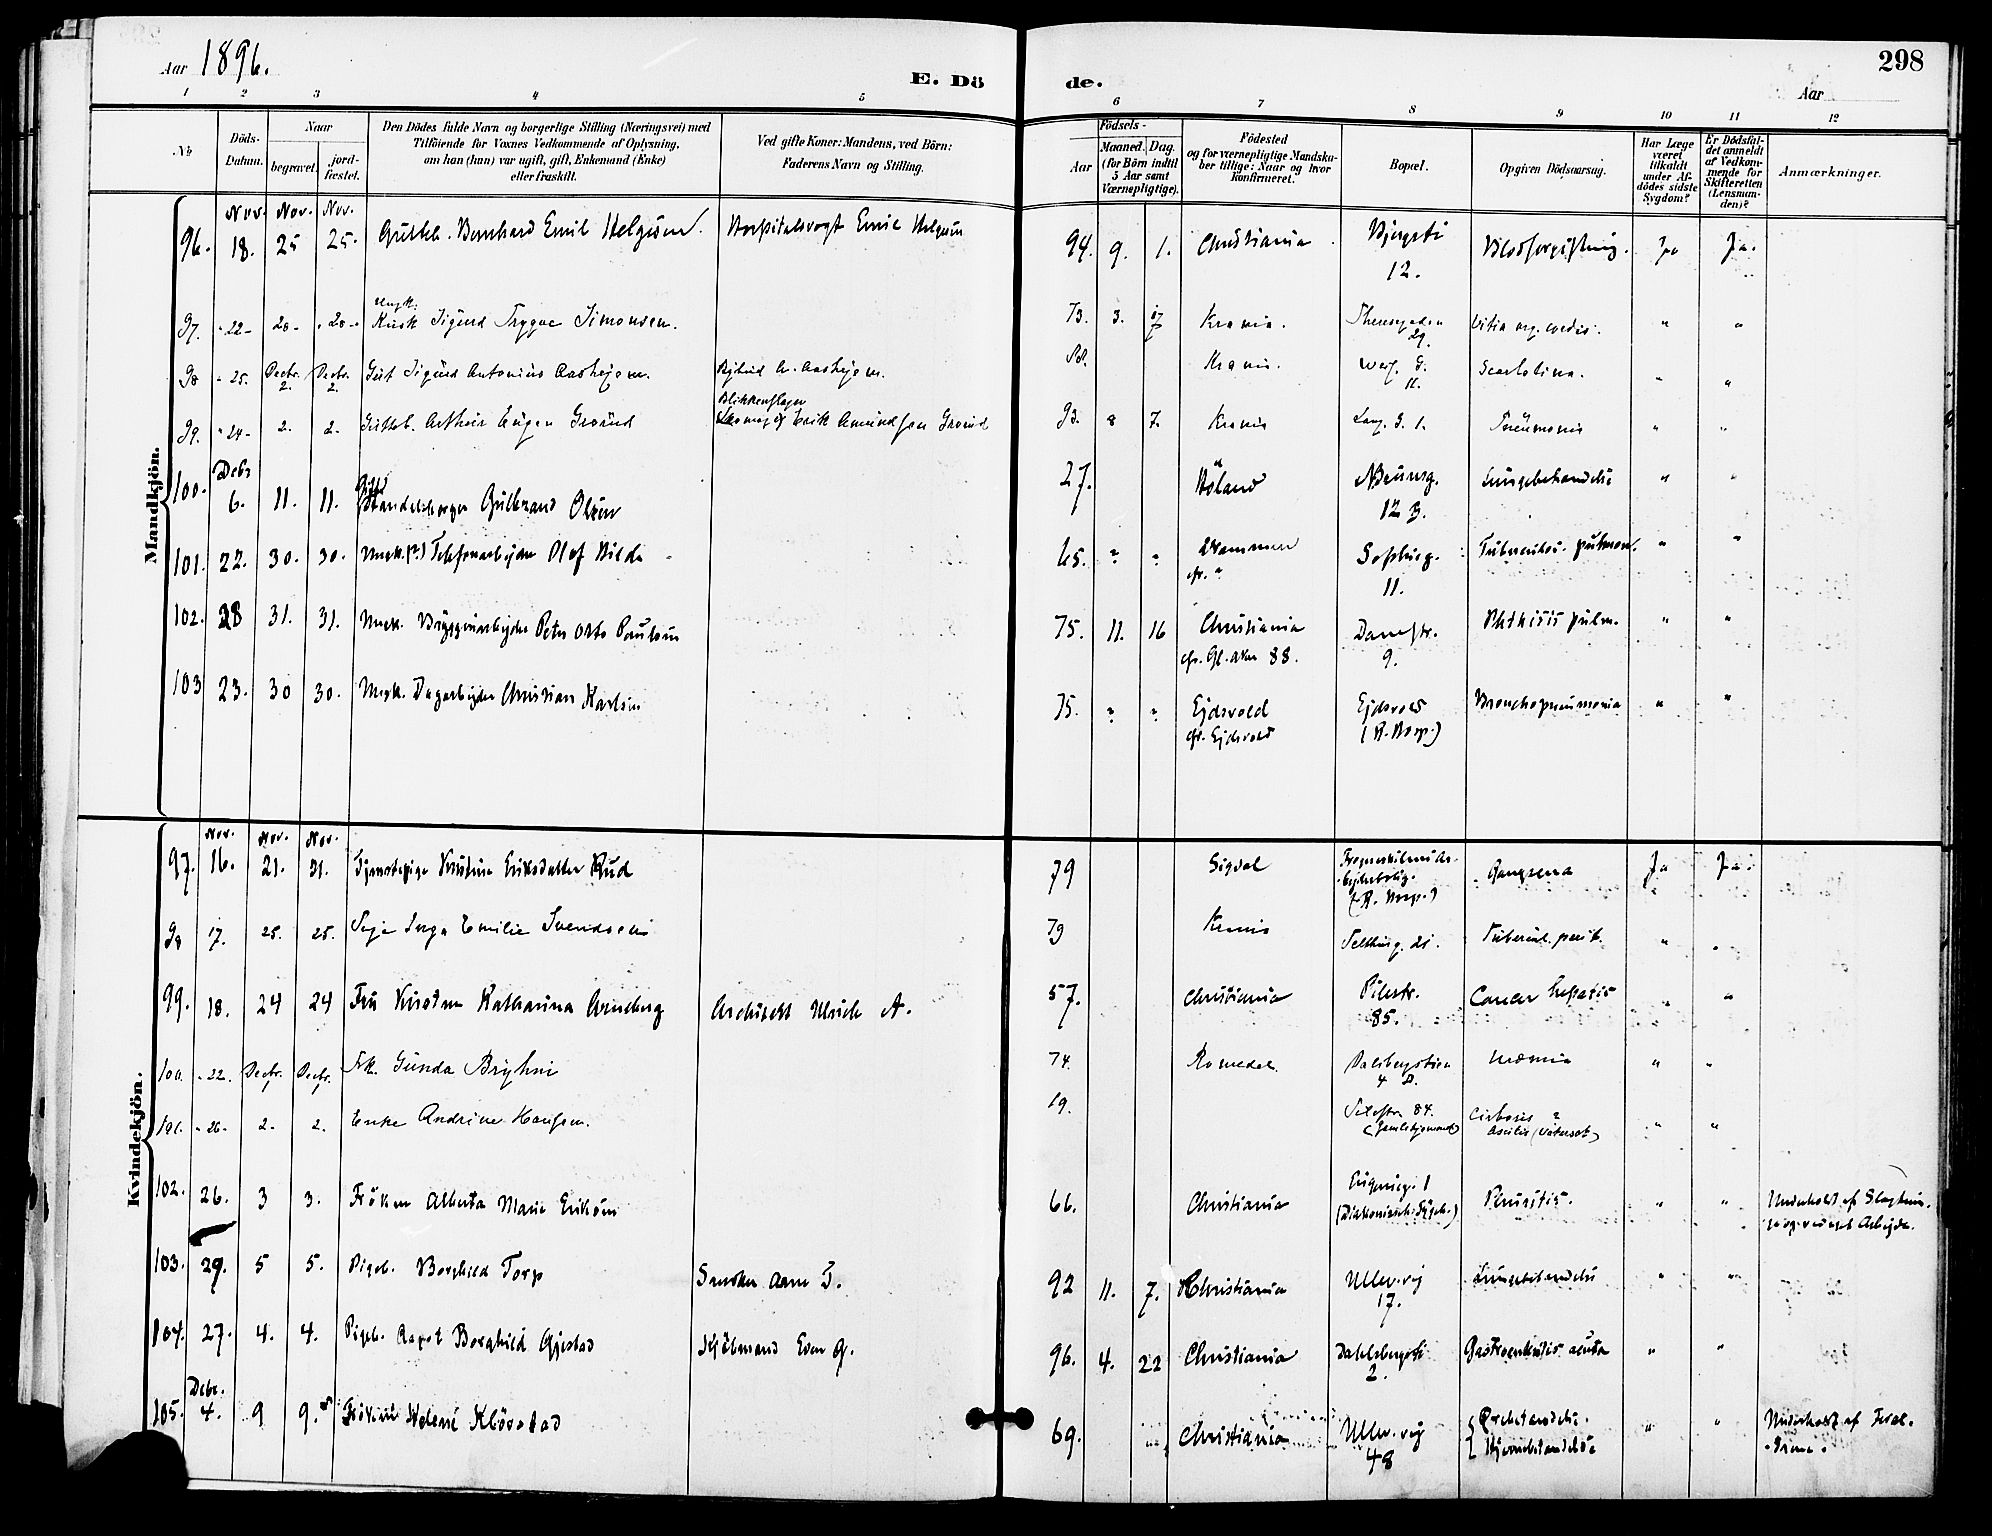 Aar 1896.
E. Dö
de.
Aar
298
1 2 3 4 5 6 7 8 9 10 11 12
No
Döds-Datum.
Naar
begravet. jord-fæstet.
Den Dödes fulde Navn og borgerlige Stilling (Næringsvei) med
Tilföiende for Voxnes Vedkommende af Oplysning,
om han (hun) var ugift, gift, Enkemand (Enke)
eller fraskilt.
Ved gifte Koner: Mandens, ved Börn:
Faderens Navn og Stilling.
Födsels-
Aar Maaned. Dag.
(for Börn indtil
5 Aar samt
Værnepligtige).
Födested
og for værnepligtige Mandska-
ber tillige: Naar og hvor
konfirmeret.
Bopæl.
Opgiven Dödsaarsag.
Har Læge
været
tilkaldt
under Af-
dödes sidste
Sygdom?
Er Dödsfal-
det anmeldt
af Vedkom-
mende for
Skifteretten
(Lensman-
den)?
Anmærkninger.
Mandkjön.
Nov. Nov. Nov.
96. 18. 25 25. Gutteb. Bernhard Emil Helgesen. Hospitalsvogt Emil Helgesen 94. 9. 1. Christiania Bjergsti 12. Blodforgiftning. Ja Ja.
97. 22 20 20 Ungk. Kusk Sigurd Trygve Simonsen. 73. 3. Krania. Theresegaden 29. Vitia org. cordis.
98 25. Decbr. 2. Decbr. 2. Gut Sigurd Antonius Aashejm. Krania. 11. Scarlatina.
99. 24 2. 2. Gutteb. Arthur Eugen Grorud Blikkenslager Erik Amundsen Grorud 93. 8 7. Krania Lang. G. 1. Pneumonia
100. Debr 6. 11. 11. Gift Handelsborger Gulbrand Olsen 27. Höland 12 B. Lungebetændelse
101. 22. 30. 30. Ungk. (?) Telefonarbejder Olaf Hilde 65. ? Drammen cfr. ? Sofieng. 11. Tuberculos. pulmon.
102. 28 31. 31. Ungk. Bryggeriarbejder Peter Otto Paulsen 75. 11. 16 Christiania cfr. Gl. Aker 88. Damstr. 9. Phthisis pulm.
103 23. 30 30. Ungk. Dagarbejder Christian Karlsen 75. ? ? Ejdsvold cfr. Ejdsvold Ejdsvold (R. Hosp.) Bronchopneumonia
Kvindekjön.
Nov. Nov. Nov.
97. 16. 21. 21. Tjenestepige Kristine Eriksdatter Rud 79 Sigdal (R. Hosp.) Gangræna Ja Ja.
98 17. 25. 25. Pige Inga Emilie Svendsen 79 Krania Telthusg. 21. Tubercul. perit.
99. 18. 24 24 Fru Kirstine Katharina Arneberg Architekt Ulrich A. 57. Christiania Pilestr. 85. Cancer hepatis
100. 22. Decbr. Decbr. Frk. Gunda Bryhni 74. Romedal Dalsbergstien 4 Uræmia
101. 26 2. 2. Enke Andrine Hansen. 19. Pilestr. 84. (Gamlehjemmet) Cirrhosis ? Ascites (Vatersot)
102. 26. 3 3. Fröken Alberta Marie Eriksen 66. Christiania Eugenieg. 1 (Diakonissehs. Sygeh.) Pleuritis. Underholdt af
103. 29. 5 5. Pigeb. Borghild Torp Snedker Arne T. 92 11. 7. Christiania Ullev. vej 17. Lungebetændelse
104. 27. 4. 4. Pigeb. Aagot Borghild Gjestad Kjöbmand Even G. 96. 4. 22 Christiania Dahlsbergsti 2. Gastroenteritis acuta
105. Debr. 4. 9 9. Fröken Helene Klövstad 69. Christiania Ullev. vej 48 Ørebetændelse. Hjernebetændelse Underholdt af